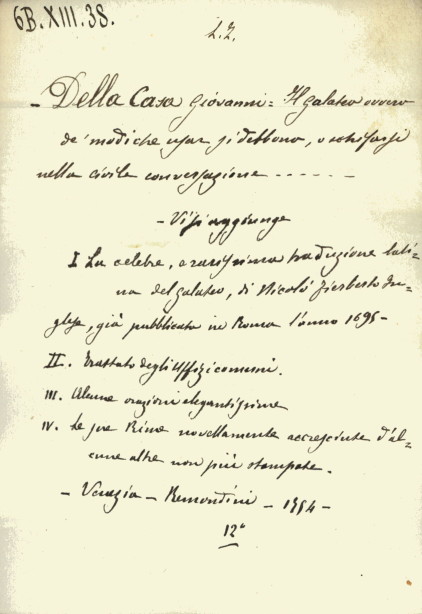 6B.XIII.38.
L.Z.
- Della Casa Giovanni = Il galateo ovvero
de' modi che usar si debbono, o schifarsi
nella civile conversazione - - - - - -
- Vi si aggiunge
I La celebre, e rarissima traduzione lati=
na del galateo, di Nicolò Fierberto In=
glese, già pubblicata in Roma l'anno 1695 -
II. Trattato degli Uffizi comuni.
III. Alcune orazioni elegantissime
IV. Le sue Rime novellamente accresciute d'al=
cune altre non più stampate.
- Venezia - Remondini - 1754 -
12°